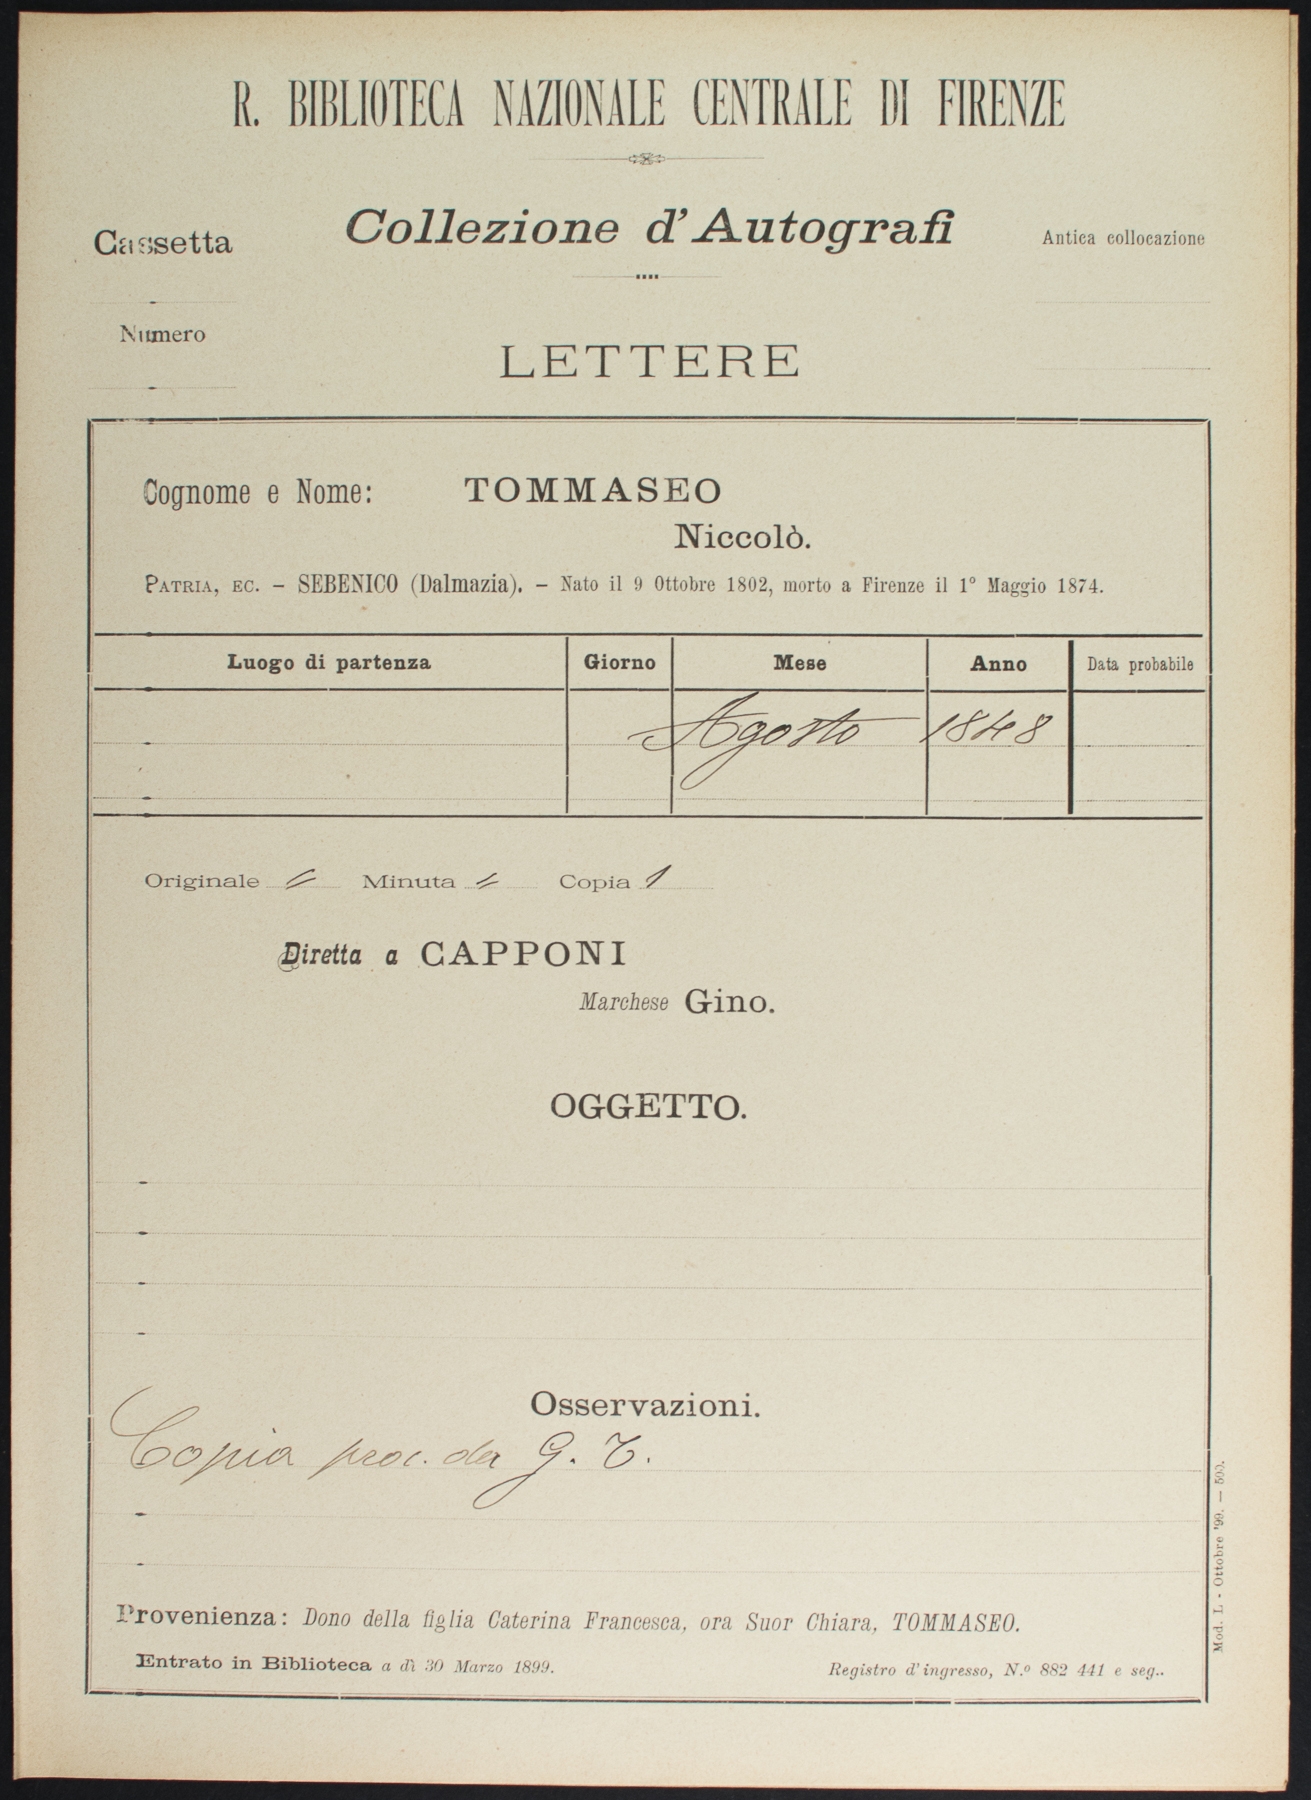 R. BIBLIOTECA NAZIONALE CENTRALE DI FIRENZE
Cassetta
Collezione d'Autografi
Antica collocazione
Numero
LETTERE
Cognome e Nome: TOMMASEO
Niccolò.
PATRIA, EC. – SEBENICO (Dalmazia). – Nato il 9 Ottobre 1802, morto a Firenze il 1º Maggio 1874.
Luogo di partenza Giorno Mese Anno Data probabile
Agosto 1848
Originale " Minuta " Copia 1
Diretta a CAPPONI
Marchese Gino.
OGGETTO.
Osservazioni.
Copia proc. da G. T.
Provenienza: Dono della figlia Caterina Francesca, ora Suor Chiara, TOMMASEO.
Entrato in Biblioteca a dì 30 Marzo 1899.
Registro d'ingresso, N.º 882 441 e seg..
Mod. L - Ottobre '99. — 500.